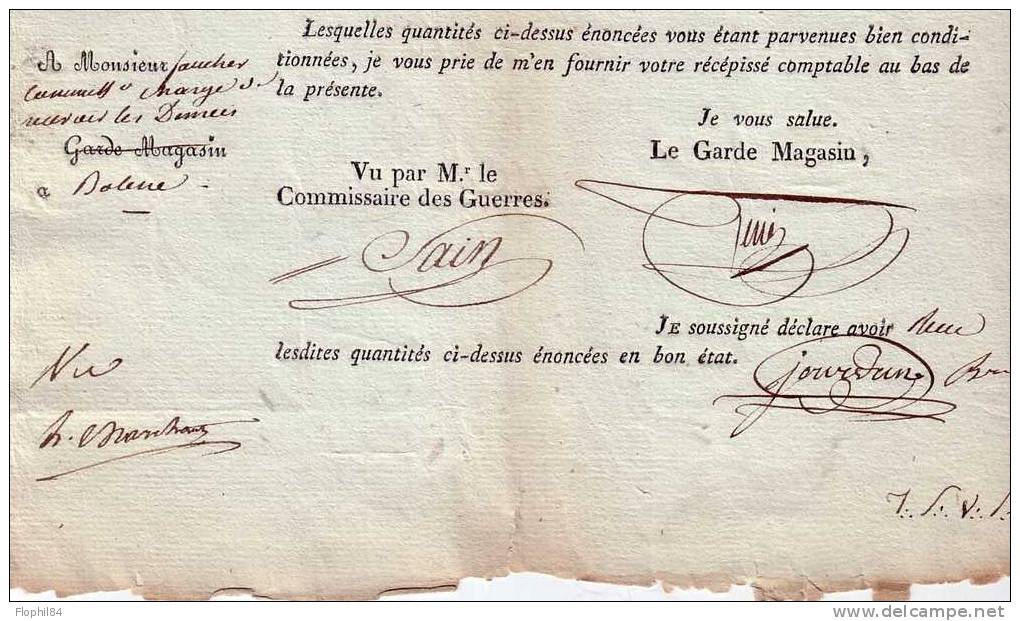 Lesquelles quantités ci-dessus énoncées vous étant parvenues bien condi-
tionnées, je vous prie de m'en fournir votre récépissé comptable au bas de
la présente.
A Monsieur faucher
chargé de
recevoir les Denrées
Garde Magasin
a Bolene
Je vous salue.
Le Garde Magasin,
Vu par M.r le
Commissaire des Guerres.
Sain
JE soussigné déclare avoir Reçu
lesdites quantités ci-dessus énoncées en bon état.
jourdan
Vu
Flophil84
www.delcampe.net